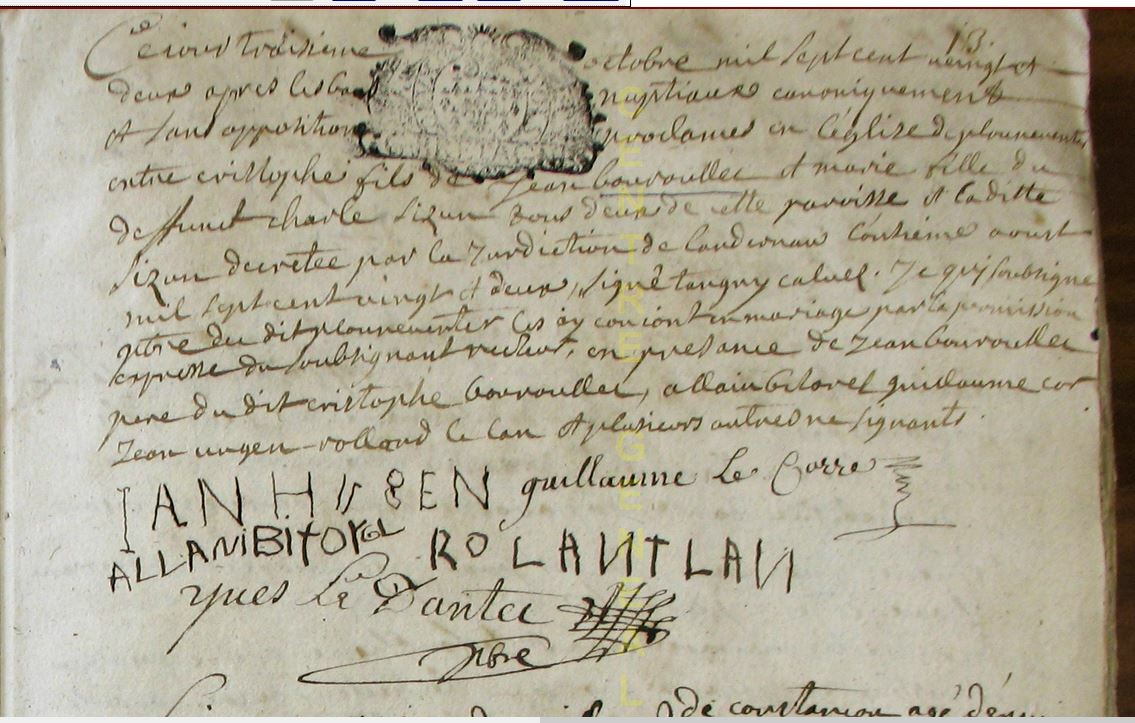 13
Ce jour troisieme octobre mil sept cent vingt et
deux apres les bans nuptiaux canoniquement
et sans opposition proclames en l'eglise de plouneventer
entre cristophe fils de Jean bourouller et marie fille du
deffunct charle sizun tous deux de cette paroisse et laditte
sizun decretée par la Jurdiction de landernau aoust
mil sept cent vingt et deux, signé tanguy calvel. Je qui soubsigne
ptbre du dit plouneventer les ay conjoint en mariage par la permission
expresse du soubsignant recteur, en presance de Jean bourouller
pere du dit cristophe bourouller, allain bitorel guillaume cor
Jean ungen rolland le lan et plusieurs autres ne signants.
IAN guillaume Le Corre
ALLANiBiTOREL ROLANTLAN
yves Le Dantec
ptbre
de constancon agé d'en
CENTRE GENEAL